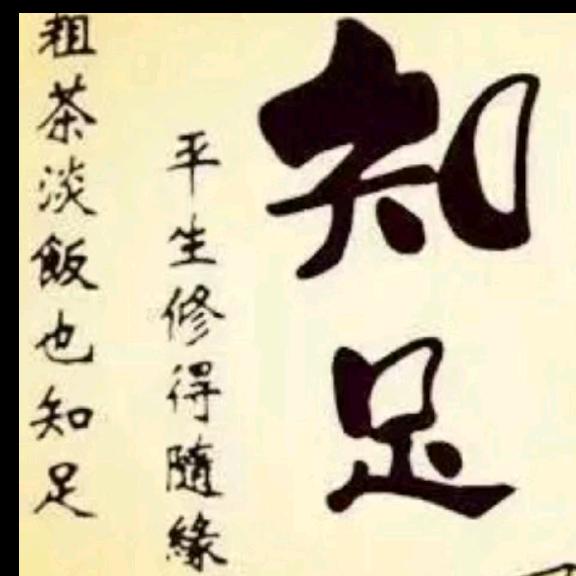 知足
平生修得隨緣
粗茶淡飯也知足